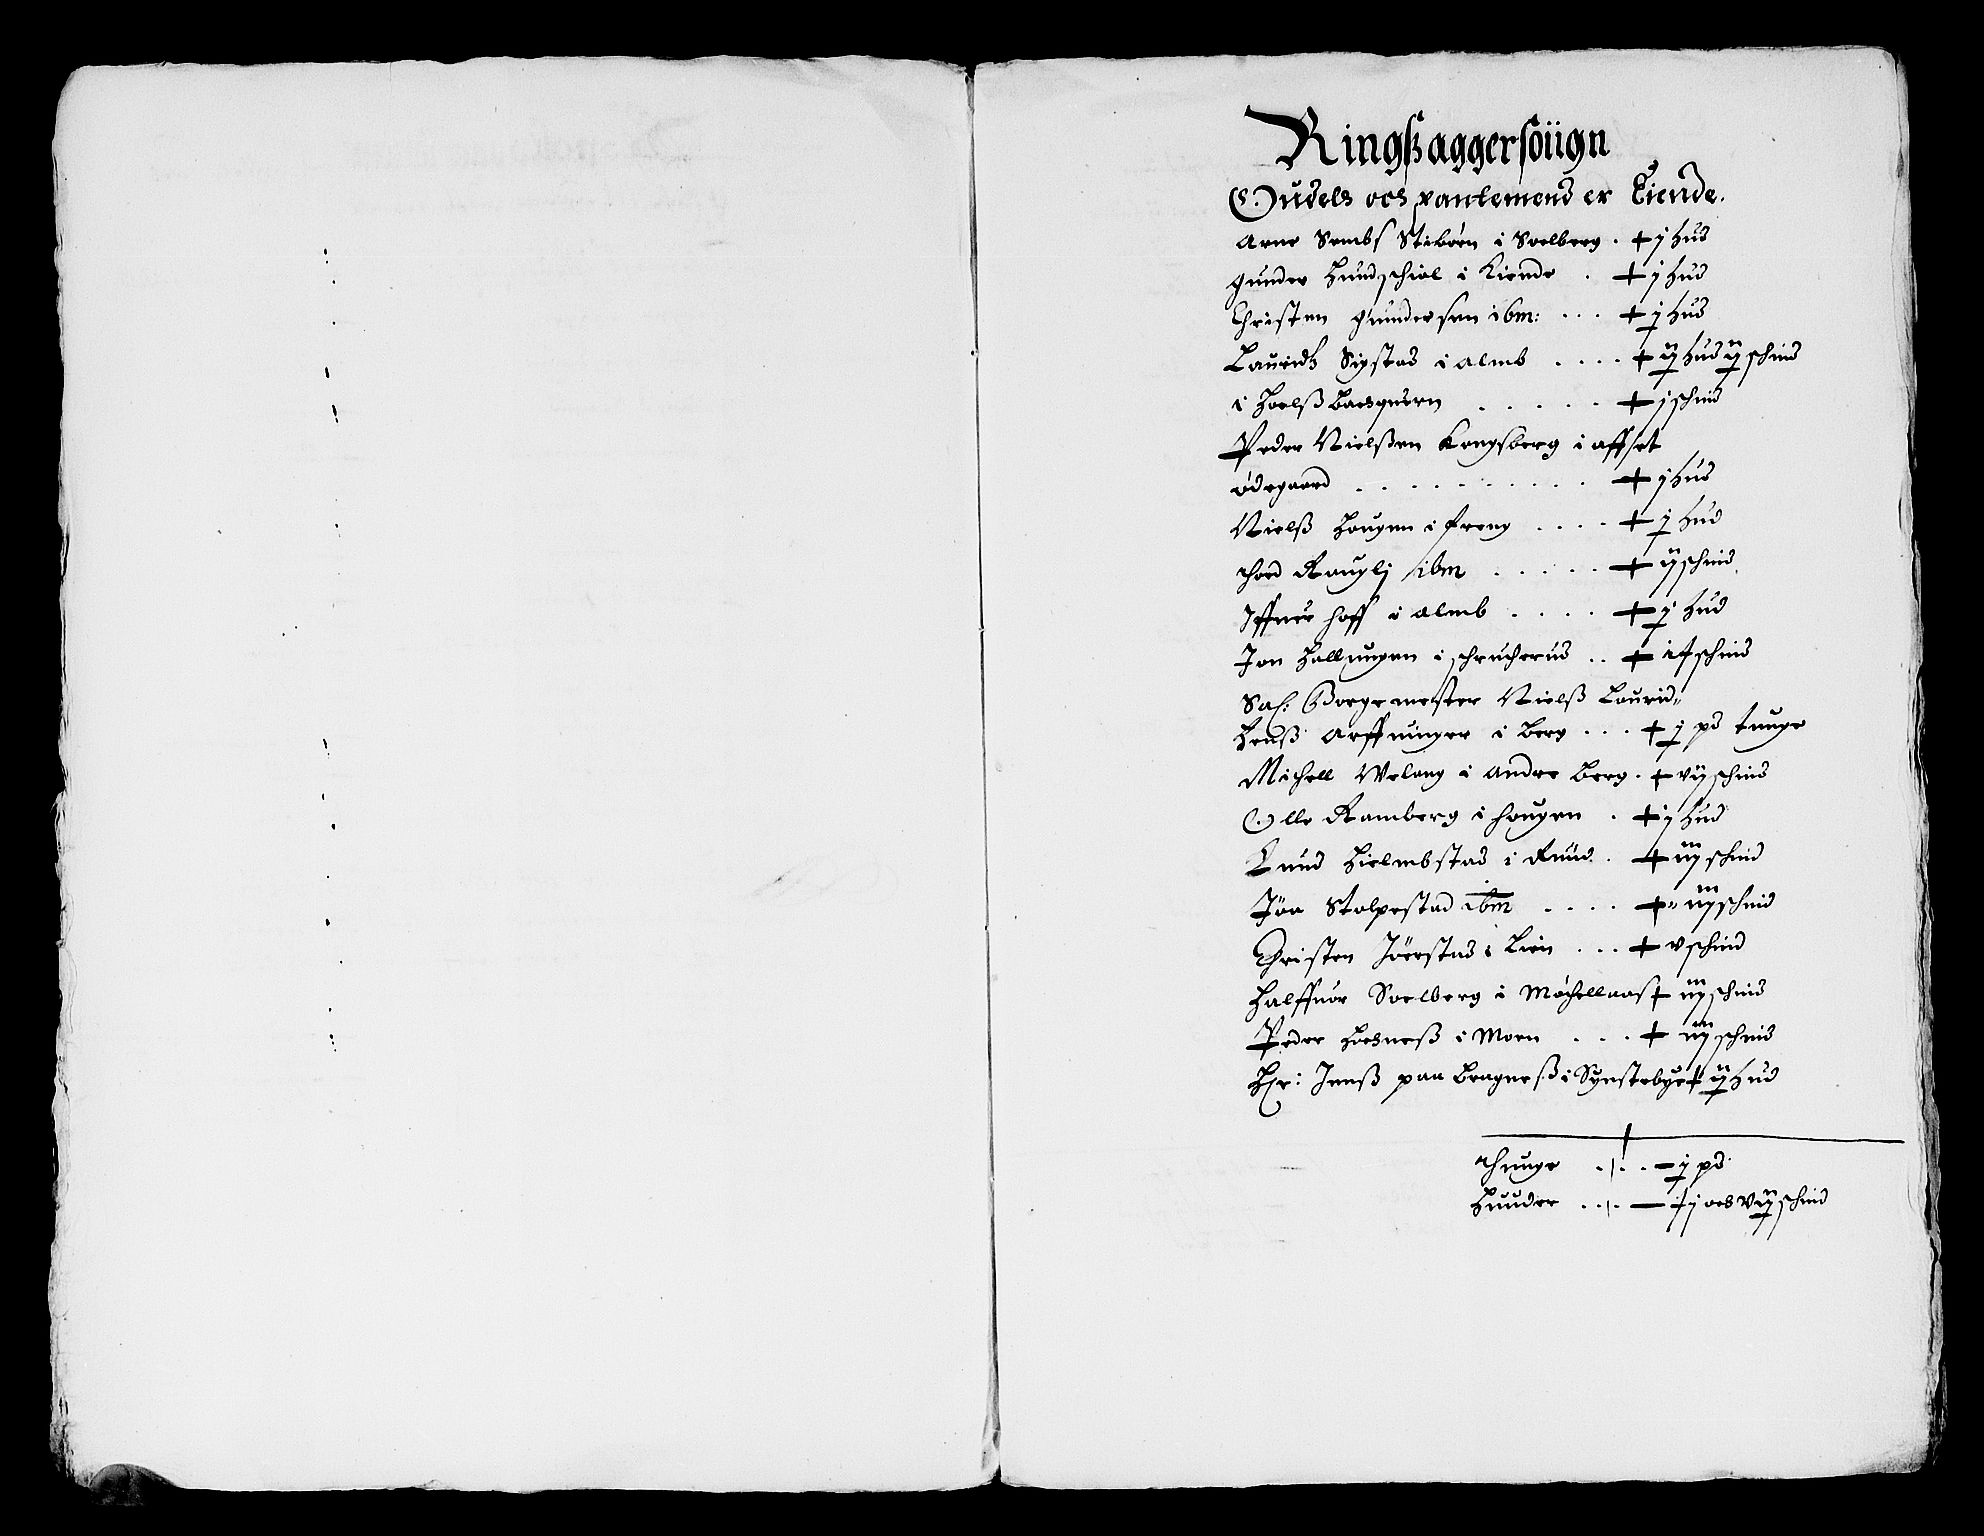 Ringßaggersougn
Oudels och pantemend er Eiende.
Arne Sembs Stiborn i Soelberg . + j hud
Gunder Hundschiol i Kiende . + j hud
Christen Gundersen ibm: . . . + j hud
Lauridtz Sigstad i Almb . . . . + ij hud ij schind
i Hoelß . . . . . + j schind
Peder Nielßen Kongsberg i affset
ødegaard . . . . . . . . . . + j hud
Nielß Hougen i freng . . . . + j hud
thord Rauglj ibm . . . . . + ij schind
Iffuer Hoff i Almb . . . . + j hud
Jon Hallingen i schrucherud . . + schind
Sal: Borgemester Nielß Laurid=
henß Arffuinger i Berg . . . + j pd tunge
Michell Welang i Andre Berg . + vij schind
Olle Ramberg i Hougen . + j hud
Knud Hielmbstad i Ruud . + iij schind
Joen Stolpestad ibm . . . . + iiij schind
Christen Jöerstad i Lien . . . + v schind
Halffuor Soelberg i Mochellaas + iij schind
Peder Hoesneß i Moen . . . + iij schind
Her: Jenß paa Bragneß i Synstebye + ij hud
thunge . . . – j pd
Huuder . . . – och vij schind